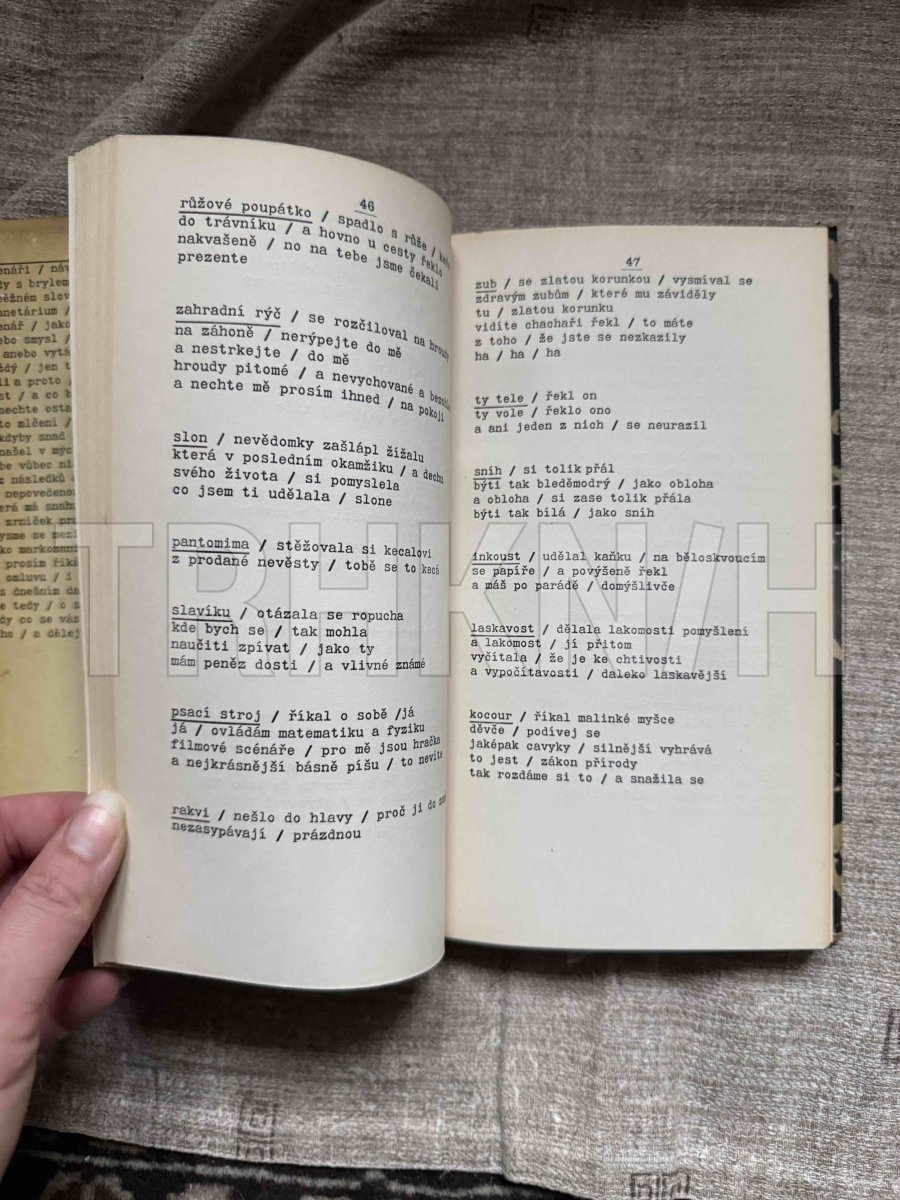 enáři / náv
dy s brylem
běžném slov
anetárium /
enář / jako
ebo smysl /
anebo vytá
ždý / jen t
li a proto /
st / a co b
nechte osta
to mlčení /
kdyby snad
našel v mých
be vůbec ni
z následků
nepovedenou
erá má snahu
zrníček pra
ysme se mezi
ko markomani
prosím říká
omluvu / i
s dnešním da
e tedy / o s
dy co se vás
ho / a dělej
46
růžové poupátko / spadlo s růže /
do trávníku / a hovno u cesty řeklo
nakvašeně / no na tebe jsme čekali
prezente
zahradní rýč / se rozčiloval na hroudy
na záhoně / nerýpejte do mě
a nestrkejte / do mě
hroudy pitomé / a nevychované a
a nechte mě prosím ihned / na pokoji
slon / nevědomky zašlápl žížalu
která v posledním okamžiku / a dechu
svého života / si pomyslela
co jsem ti udělala / slone
pantomima / stěžovala si kecalovi
z prodané nevěsty / tobě se to kecá
slavíku / otázala se ropucha
kde bych se / tak mohla
naučiti zpívat / jako ty
mám peněz dosti / a vlivné známé
psací stroj / říkal o sobě /já
já / ovládám matematiku a fyziku
filmové scénáře / pro mě jsou hračka
a nejkrásnější básně píšu / to nevíte
rakvi / nešlo do hlavy / proč ji do
nezasypávají / prázdnou
47
zub / se zlatou korunkou / vysmíval se
zdravým zubům / které mu záviděly
tu / zlatou korunku
vidíte chachaři řekl / to máte
z toho / že jste se nezkazily
ha / ha / ha
ty tele / řekl on
ty vole / řeklo ono
a ani jeden z nich / se neurazil
sníh / si tolik přál
býti tak bleděmodrý / jako obloha
a obloha / si zase tolik přála
býti tak bílá / jako sníh
inkoust / udělal kaňku / na běloskvoucím
se papíře / a povýšeně řekl
a máš po parádě / domýšlivče
laskavost / dělala lakomosti pomyšlení
a lakomost / jí přitom
vyčítala / že je ke chtivosti
a vypočítavosti / daleko laskavější
kocour / říkal malinké myšce
děvče / podívej se
jaképak cavyky / silnější vyhrává
to jest / zákon přírody
tak rozdáme si to / a snažila se
TRHKNIH